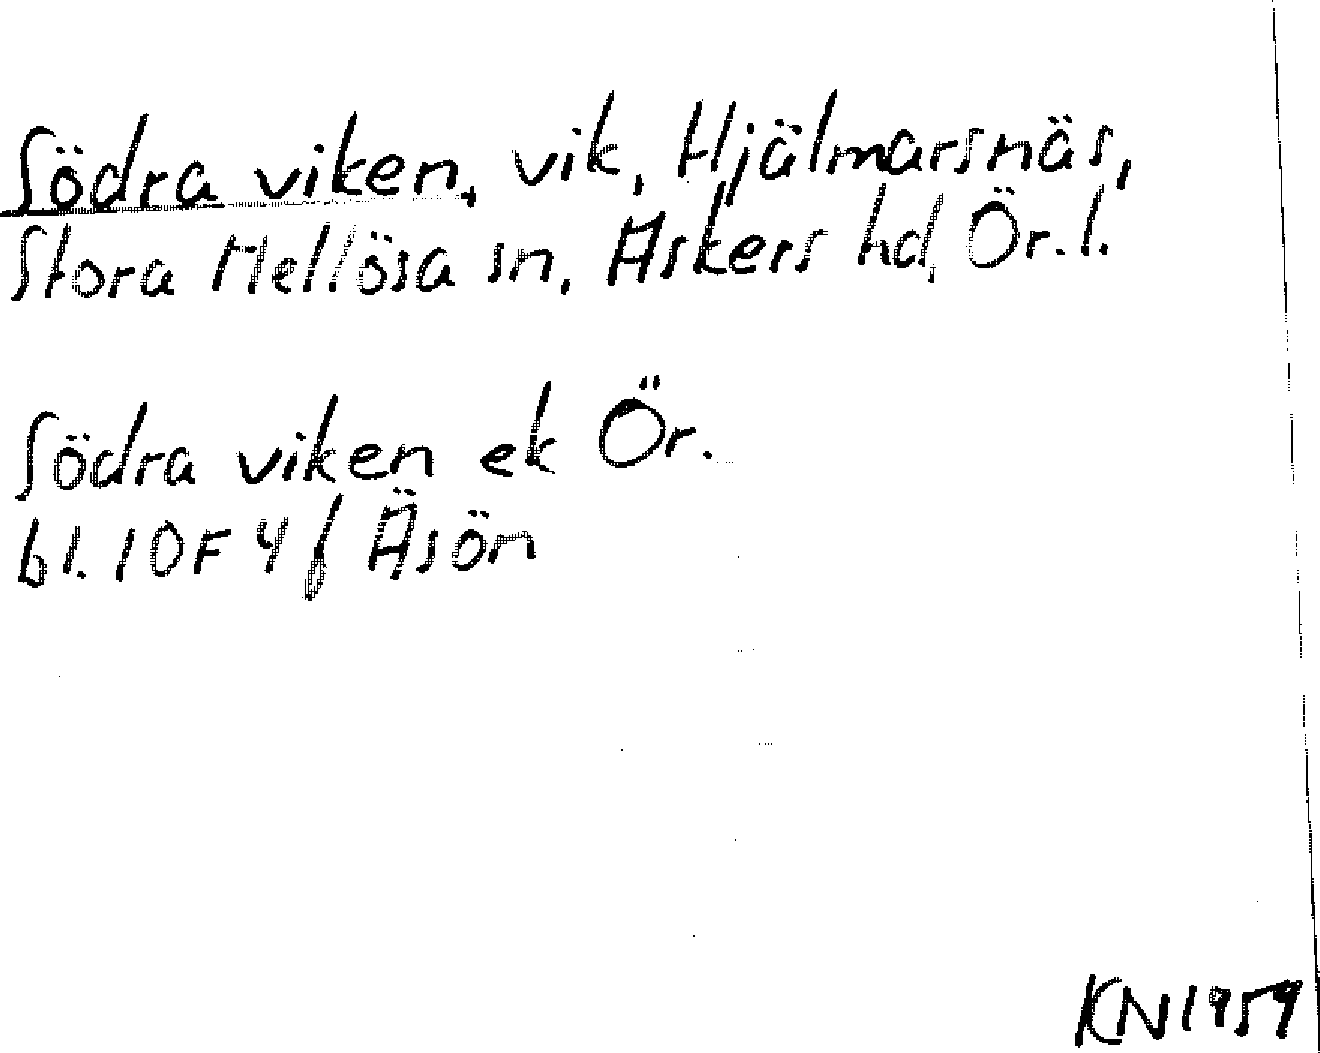 Södra viken, vik, Hjälmarsnäs,
Stora Mellösa sn, Askers hd, Ör.l.
Södra viken ek Ör.
bl. 10F 4f Äsön
KN1959